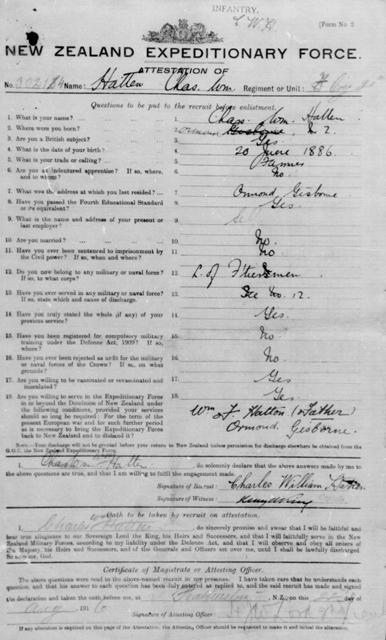 INFANTRY.
[Form No. 2
NEW ZEALAND EXPEDITIONARY FORCE.
ATTESTATION OF
No. Hatten Chas. Wm. Regiment or Unit:
Questions to be put to the recruit before enlistment.
1. What is your name? 1. Chas. Wm. Hatten
2. Where were you born? 2. Ormond Gisborne N.Z.
3. Are you a British subject? 3. Yes
4. What is the date of your birth? 4. 20 June 1886.
5. What is your trade or calling? 5. Farmer
6. Are you an indentured apprentice? If so, where, and to whom? 6. No
7. What was the address at which you last resided? 7. Ormond Gisborne
8. Have you passed the Fourth Educational Standard or its equivalent? 8. Yes
9. What is the name and address of your present or last employer? 9. Self
10. Are you married? 10. No.
11. Have you ever been sentenced to imprisonment by the Civil power? If so, when and where? 11. no
12. Do you now belong to any military or naval force? If so, to what corps? 12. L. of Ftiersmen
13. Have you ever served in any military or naval force? If so, state which and cause of discharge. 13. See No. 12.
14. Have you truly stated the whole (if any) of your previous service? 14. Yes.
15. Have you been registered for compulsory military training under the Defence Act, 1909? If so, where? 15. No
16. Have you ever been rejected as unfit for the military or naval forces of the Crown? If so, on what grounds? 16. No.
17. Are you willing to be vaccinated or revaccinated and inoculated? 17. Yes
18. Are you willing to serve in the Expeditionary Force in or beyond the Dominion of New Zealand under the following conditions, provided your services should so long be required: For the term of the present European war and for such further period as is necessary to bring the Expeditionary Force back to New Zealand and to disband it? 18. Yes.
Wm F. Hatton (Father)
Ormond, Gisborne.
Note.—Your discharge will not be granted before your return to New Zealand unless permission for discharge elsewhere be obtained from the G.O.C., the New Zealand Expeditionary Force.
I, Hatten do solemnly declare that the above answers made by me to the above questions are true, and that I am willing to fulfil the engagement made.
Signature of Recruit: Charles William Hatten
Signature of Witness:
Oath to be taken by recruit on attestation.
I, do sincerely promise and swear that I will be faithful and bear true allegiance to our Sovereign Lord the King, his Heirs and Successors, and that I will faithfully serve in the New Zealand Military Forces, according to my liability under the Defence Act, and that I will observe and obey all orders of His Majesty, his Heirs and Successors, and of the Generals and Officers set over me, until I shall be lawfully discharged. So help me, God.
Certificate of Magistrate or Attesting Officer.
The above questions were read to the above-named recruit in my presence. I have taken care that he understands each question, and that his answer to each question has been duly entered as replied to, and the said recruit has made and signed the declaration and taken the oath before me, at N.Z., on this
Aug 1916
Signature of Attesting Officer
If any alteration is required on this page of the Attestation, the Attesting Officer should be requested to make it and initial the alteration.